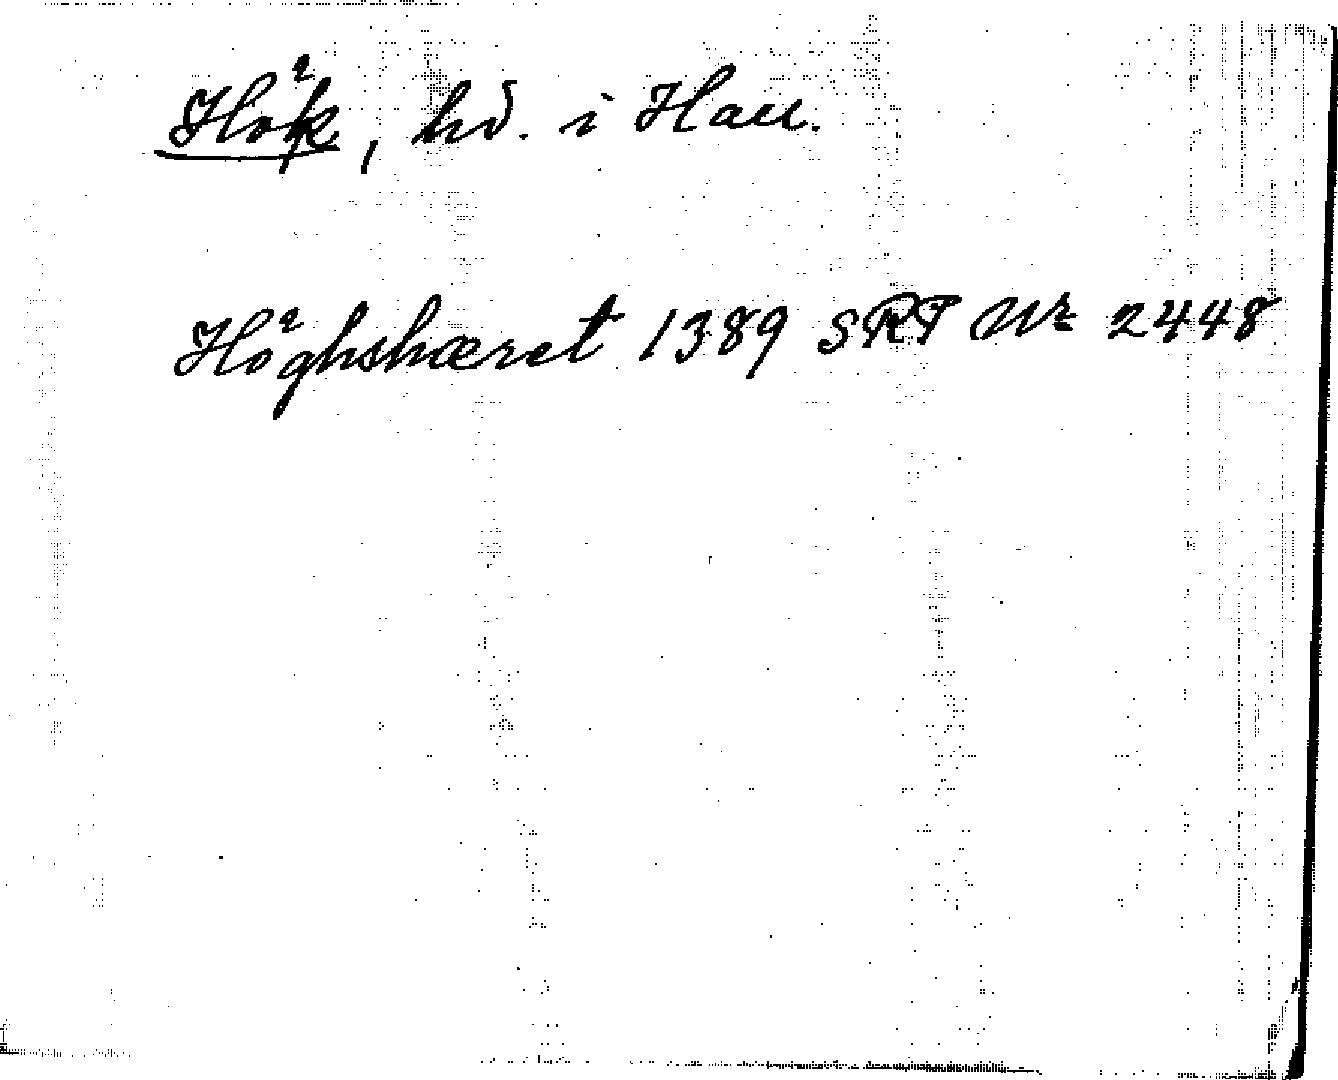 Hök, hd. i Hall.
Höghshæret 1389 SRP Nr 2448